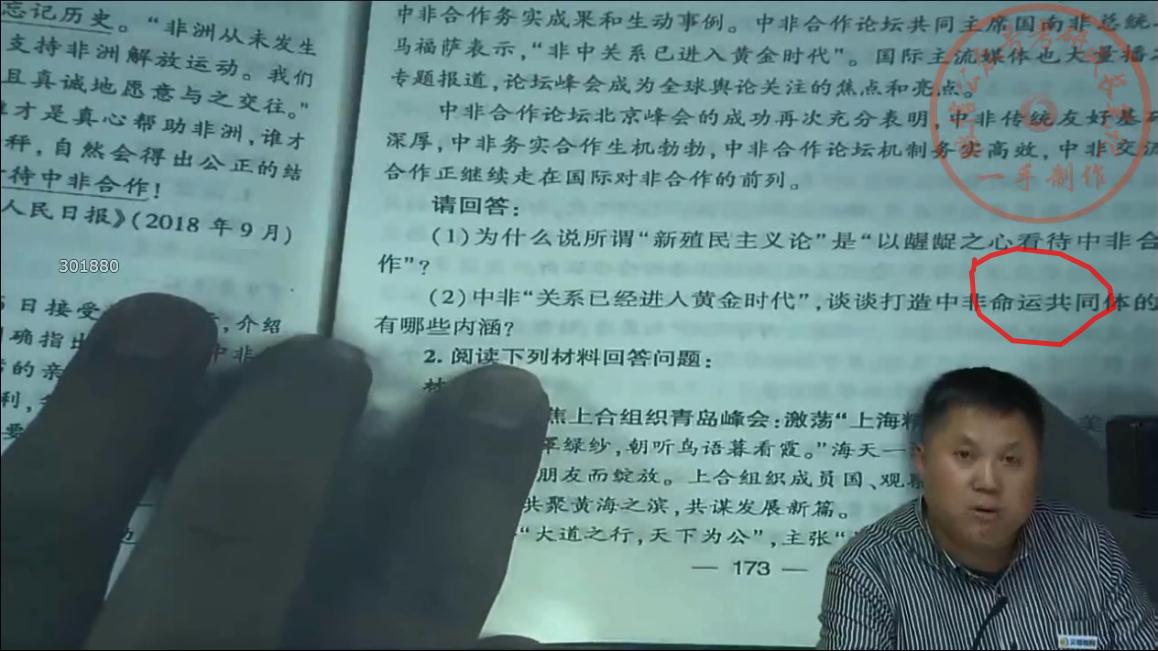 忘记历史。“非洲从未发生
支持非洲解放运动。我们
且真诚地愿意与之交往。”
才是真心帮助非洲，谁才
秤，自然会得出公正的结
待中非合作！
人民日报》(2018年9月)
301880
日接受
，介绍
确指出
中非
的亲
利，
要
中非合作务实成果和生动事例。中非合作论坛共同主席国南非总统
马福萨表示，“非中关系已进入黄金时代”。国际主流媒体也大量播
专题报道，论坛峰会成为全球舆论关注的焦点和亮点。
中非合作论坛北京峰会的成功再次充分表明，中非传统友好基
深厚，中非务实合作生机勃勃，中非合作论坛机制务实高效，中非交流
合作正继续走在国际对非合作的前列。
请回答：
(1)为什么说所谓“新殖民主义论”是“以龌龊之心看待中非合
作”？
(2)中非“关系已经进入黄金时代”，谈谈打造中非命运共同体的
有哪些内涵？
2. 阅读下列材料回答问题：
焦上合组织青岛峰会：激荡“上海精
美
罩绿纱，朝听鸟语暮看霞。”海天一
朋友而绽放。上合组织成员国、观察
共聚黄海之滨，共谋发展新篇。
“大道之行，天下为公”，主张“
— 173 —
一手制作